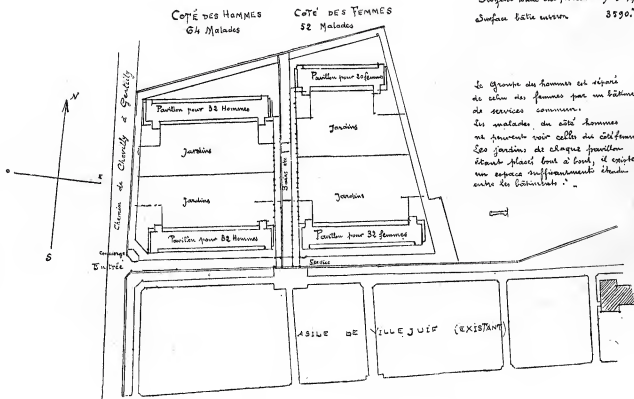 CÔTÉ DES HOMMES
64 Malades
COTÉ DES FEMMES
52 Malades
Surface bâtie environ 3590.
Le Groupe des hommes est séparé
de celui des femmes par un bâtiment
de services communs.
Les malades du côté hommes
ne peuvent voir celles du côté femmes
Les jardins de chaque pavillon
étant placés bout à bout, il existe
un espace suffisamment étendu
entre les bâtiments."
N
S
Chemin de Chevilly à Gentilly
Pavillon pour 32 Hommes
Pavillon pour 20 femmes
Jardins
Jardins
Jardins
Jardins
Pavillon pour 32 Hommes
Pavillon pour 32 femmes
Concierge
Entrée
Service
ASILE DE VILLEJUIF (EXISTANT)